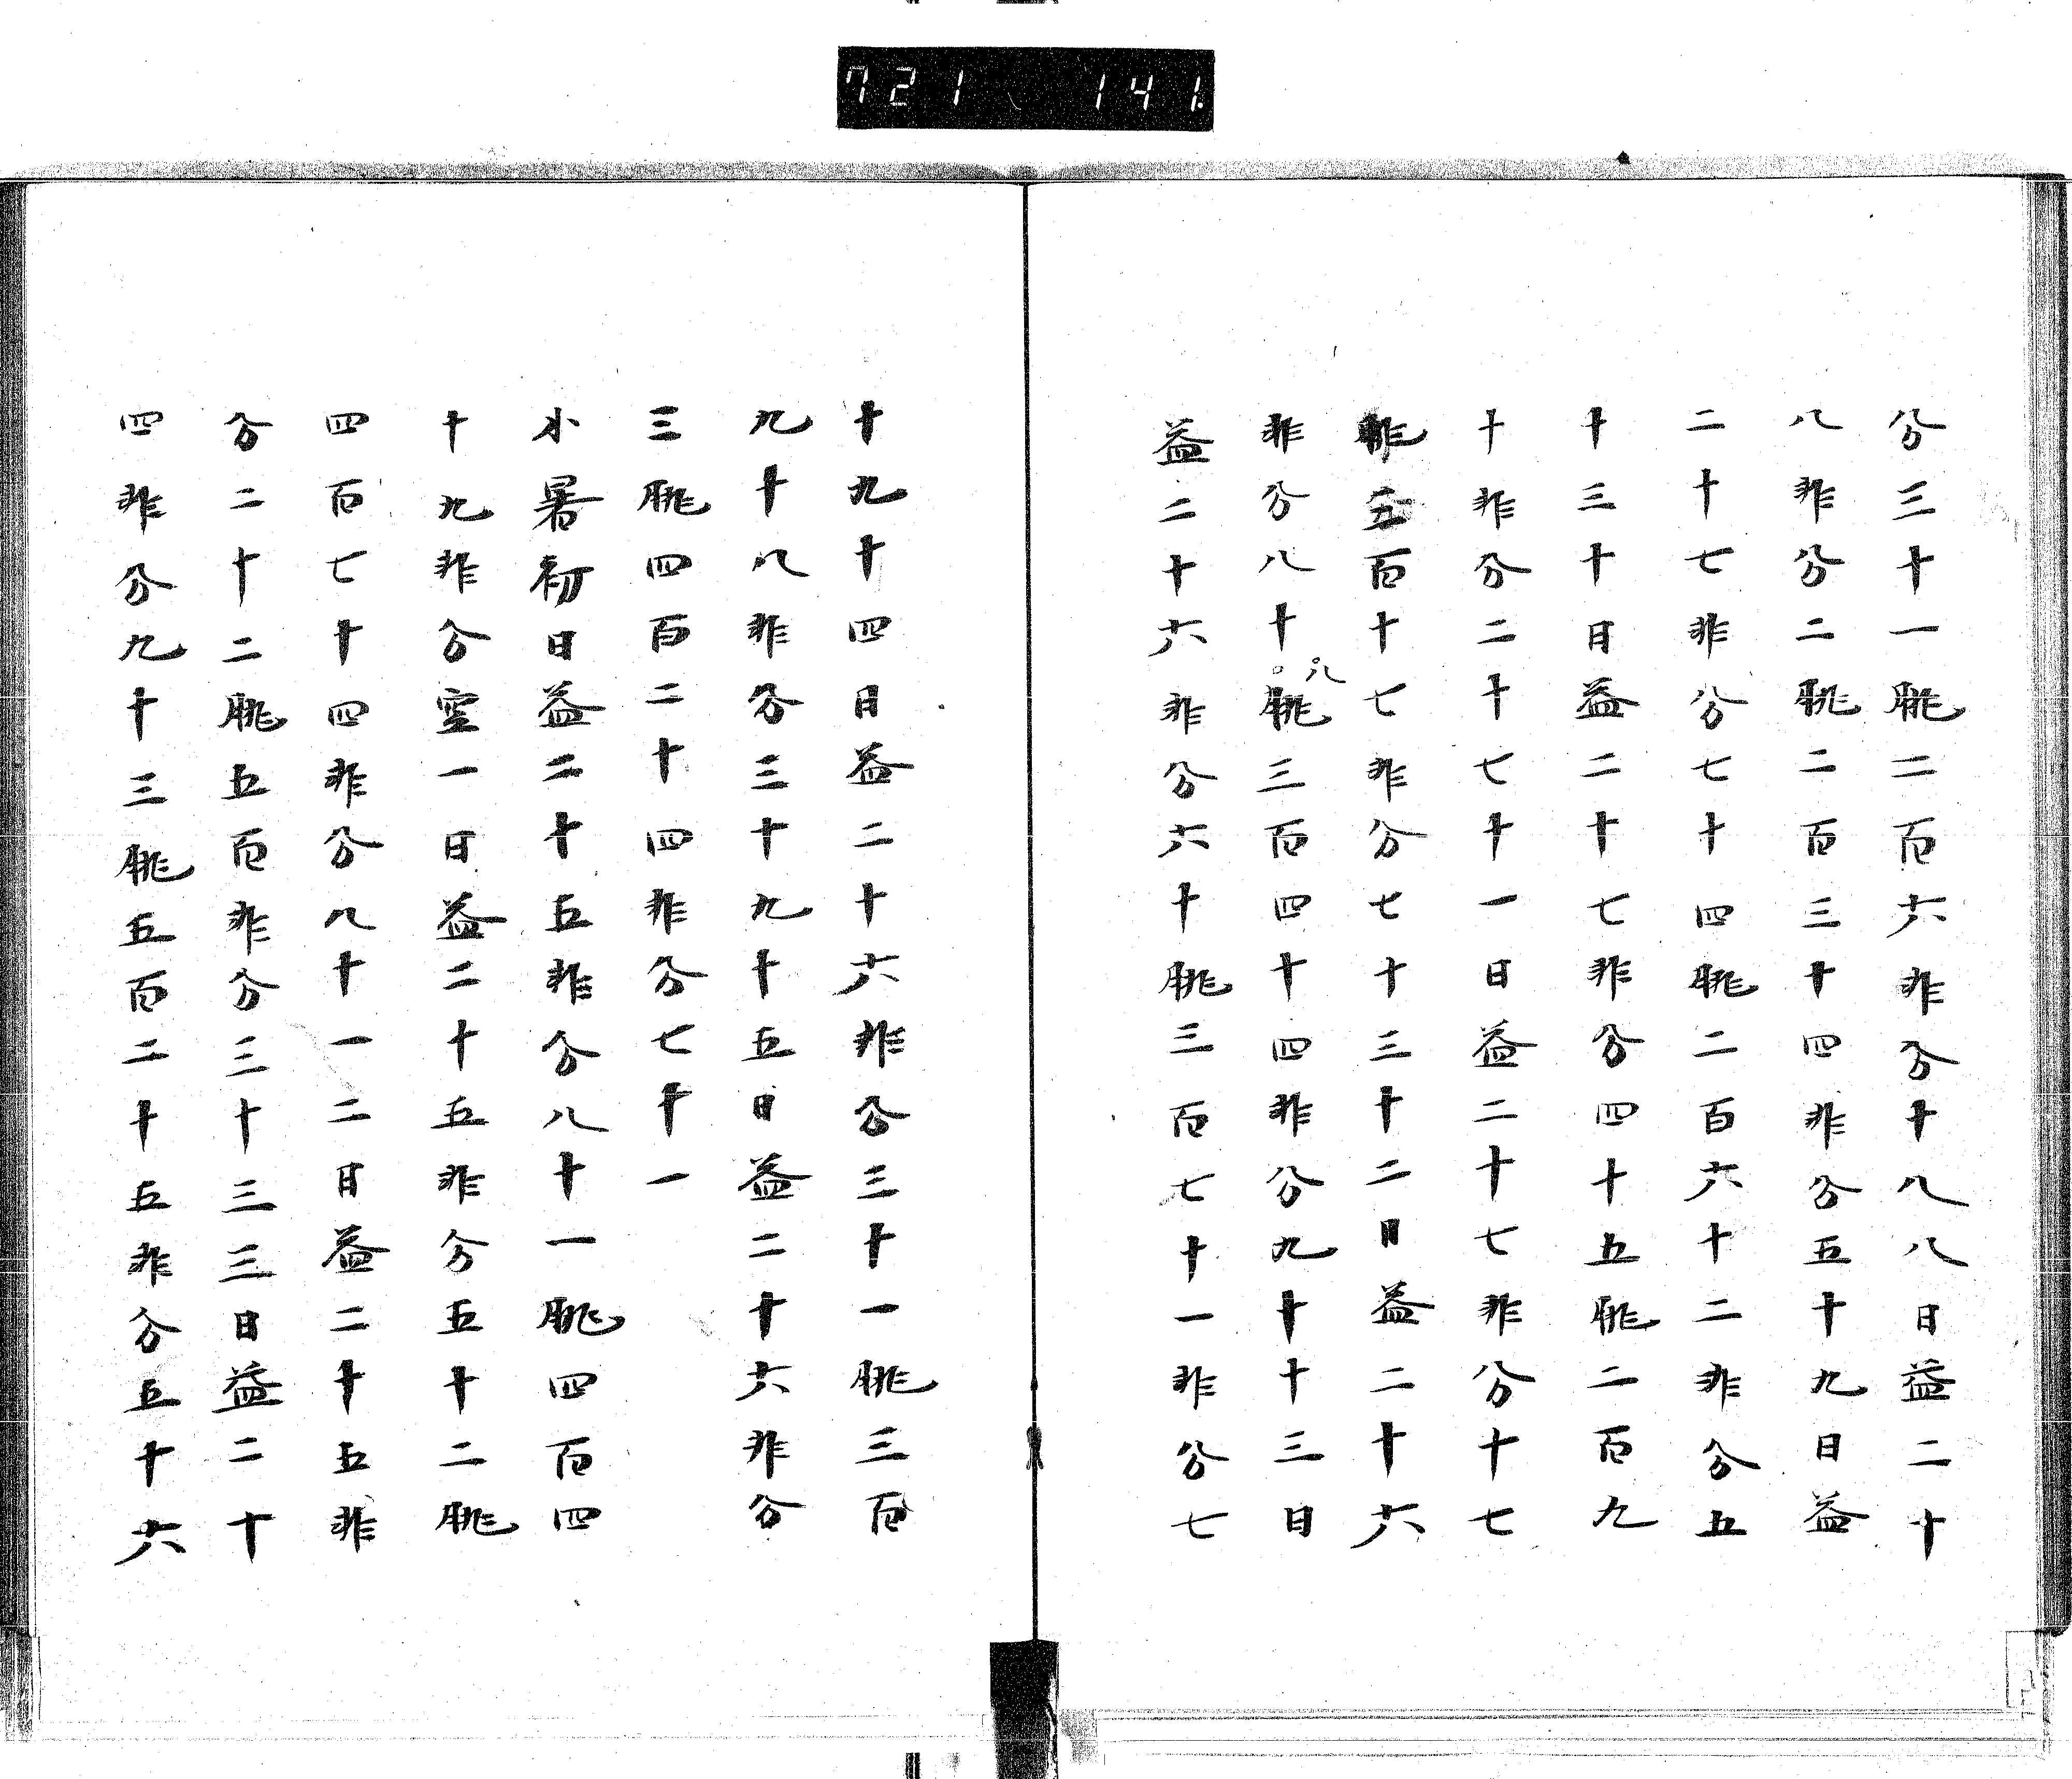 721 141
分三十一朓二百六非分十八八日益二十
八非分二朓二百三十四非分五十九日益
二十七非分七十四朓二百六十二非分五
十三十日益二十七非分四十五朓二百九
十非分二十七十一日益二十七非分十七
朓百十七非分七十三十二日益二十六
非分八十八朓三百四十四非分九十十三日
益二十六非分六十朓三百七十一非分七
十九十四日益二十六非分三十一朓三百
九十八非分三十九十五日益二十六非分
三朓四百二十四非分七十一
小暑初日益二十五非分八十一朓四百四
十九非分空一日益二十五非分五十二朓
四百七十四非分八十一二日益二十五非
分二十二朓五百非分三十三三日益二十
四非分九十三朓五百二十五非分五十六